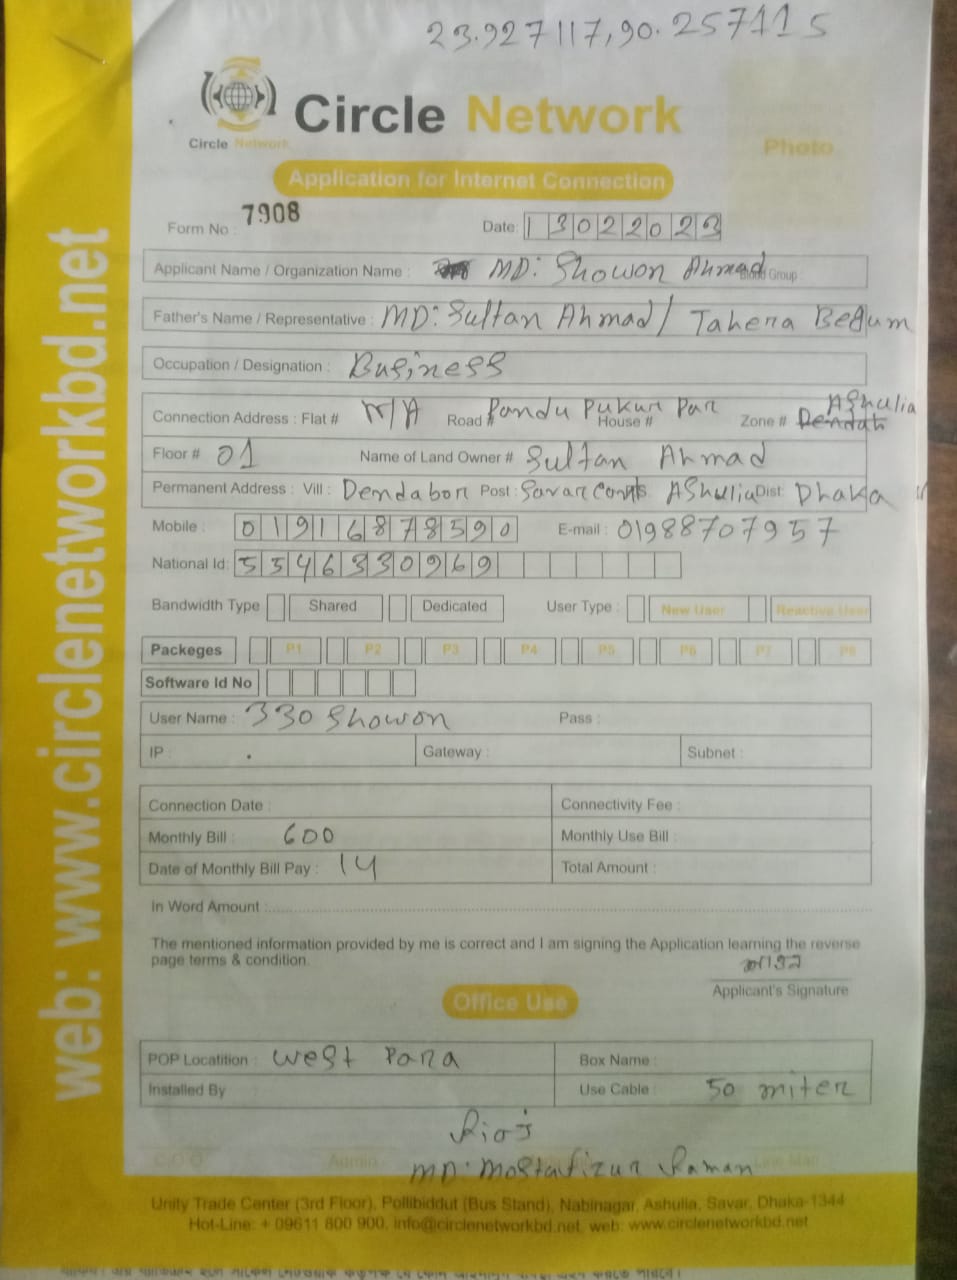 23.927117,90.257115
Circle Network
Circle Network
Photo
Application for Internet Connection
Form No : 7908 Date: 13022023
Applicant Name / Organization Name : MD: Showon Ahmad Blood Group :
Father's Name / Representative : MD: Sultan Ahmad / Tahera Begum
Occupation / Designation : Business
Connection Address : Flat # N/A Road # Pandu Pukur Par House # Zone # Ashulia
Floor # 01 Name of Land Owner # Sultan Ahmad
Permanent Address : Vill : Dendabon Post : Savar Ashulia Dist: Dhaka
Mobile : 01916878590 E-mail : 01988707957
National Id: 5546330969
Bandwidth Type Shared Dedicated User Type : New User Reactive User
Packeges P1 P2 P3 P4 P5 P6 P7 P8
Software Id No
User Name : 330 Showon Pass :
IP : Gateway : Subnet :
Connection Date : Connectivity Fee :
Monthly Bill : 600 Monthly Use Bill :
Date of Monthly Bill Pay : 14 Total Amount :
In Word Amount :
The mentioned information provided by me is correct and I am signing the Application learning the reverse
page terms & condition.
Applicant's Signature
Office Use
POP Locatition : West Para Box Name :
Installed By Use Cable : 50 miter
C.O.O Admin Line Man
MD: Mostafizur Raman
Unity Trade Center (3rd Floor), Pollibiddut (Bus Stand), Nabinagar, Ashulia, Savar, Dhaka-1344
Hot-Line: + 09611 800 900, info@circlenetworkbd.net, web: www.circlenetworkbd.net
web: www.circlenetworkbd.net